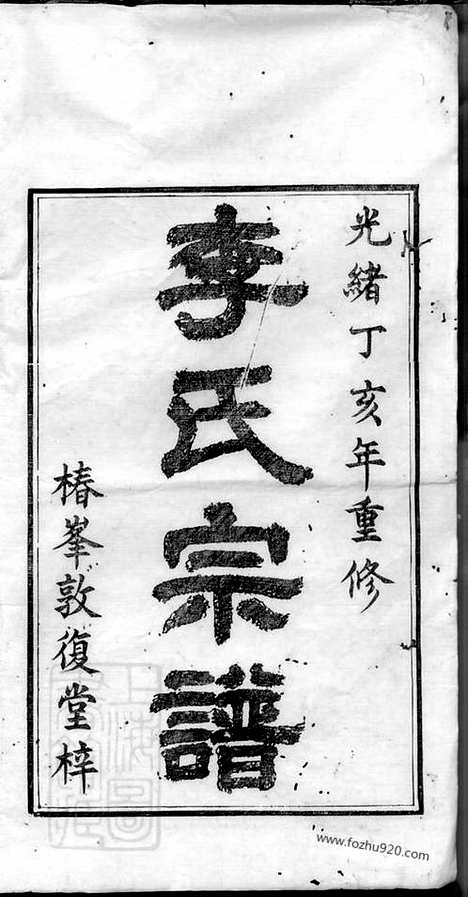 光緒丁亥年重修
李氏宗譜
椿峯敦復堂梓
www.fozhu920.com